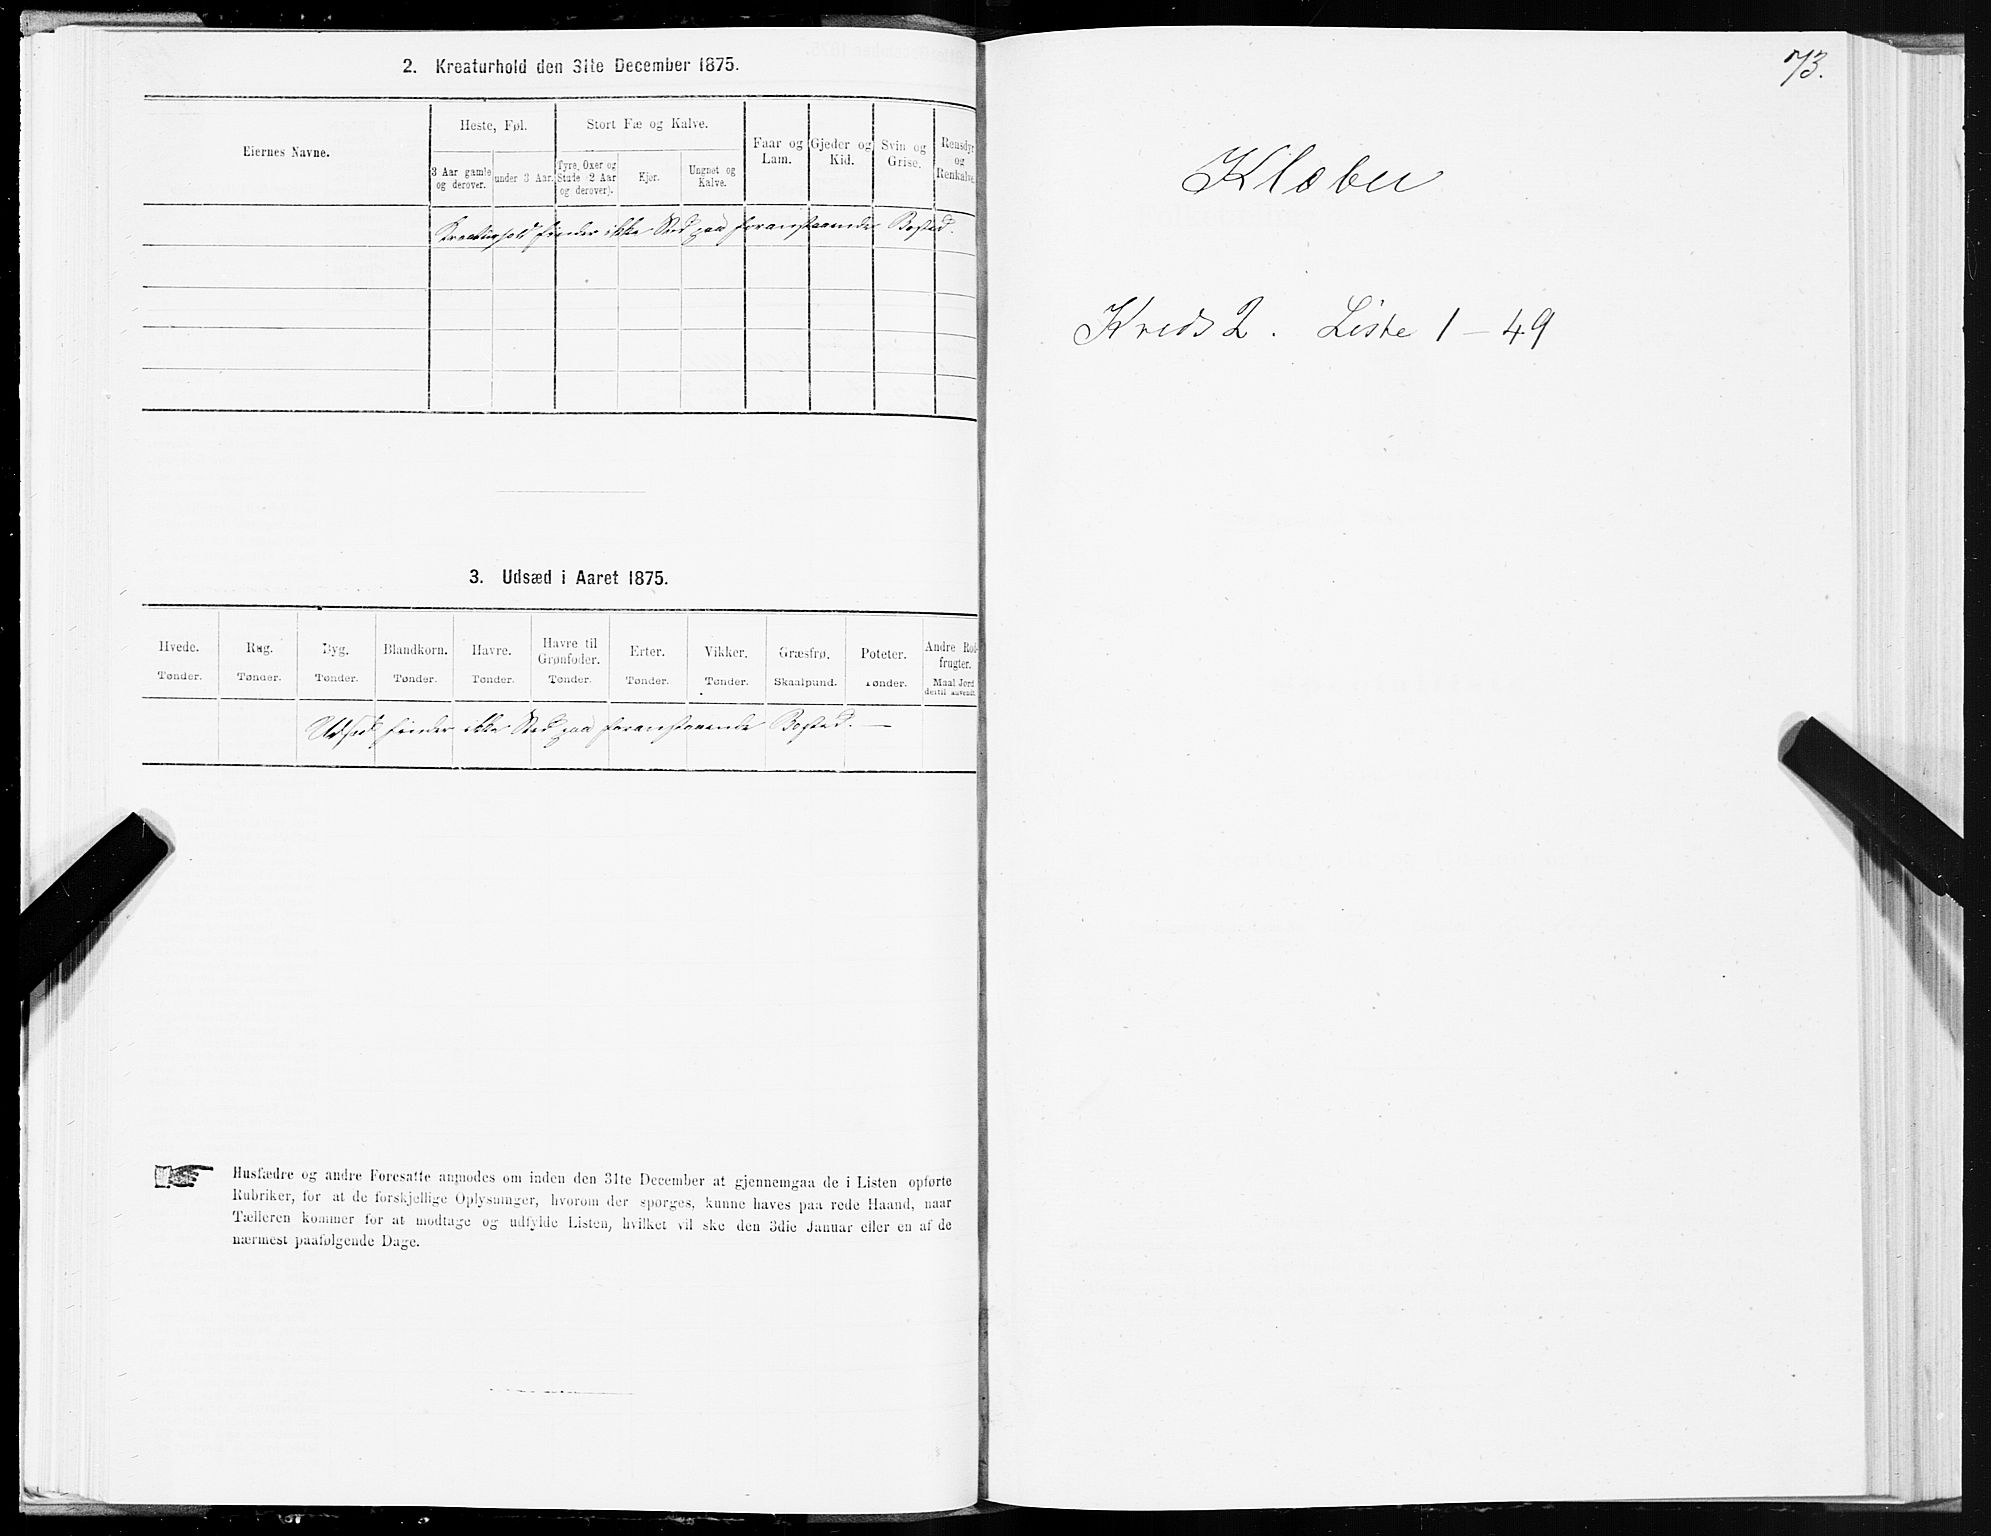 2. Kreaturhold den 31te December 1875.
Eiernes Navne.
Heste, Føl.
Stort Fæ og Kalve.
Faar og Lam.
Gjeder og Kid.
Svin og Grise.
Rensdyr og Renkalve.
3 Aar gamle og derover.
under 3 Aar.
Tyre, Oxer og Stude (2 Aar og derover).
Kjør.
Ungnet og Kalve.
Kreaturhold finder ikke Sted paa foranstaaende Bosted.
3. Udsæd i Aaret 1875.
Hvede. Rug. Byg. Blandkorn. Havre. Havre til Grønfoder. Erter. Vikker. Græsfrø. Poteter. Andre Rodfrugter.
Tønder. Tønder. Tønder. Tønder. Tønder. Tønder. Tønder. Tønder. Skaalpund. Tønder. Maal Jord dertil anvendt.
Udsæd finder ikke Sted paa foranstaaende Bosted. —
Husfædre og andre Foresatte anmodes om inden den 31te December at gjennemgaa de i Listen opførte
Rubriker, for at de forskjellige Oplysninger, hvorom der spørges, kunne haves paa rede Haand, naar
Tælleren kommer for at modtage og udfylde Listen, hvilket vil ske den 3die Januar eller en af de
nærmest paafølgende Dage.
73.
Klæbu
Kreds 2. Liste 1 – 49